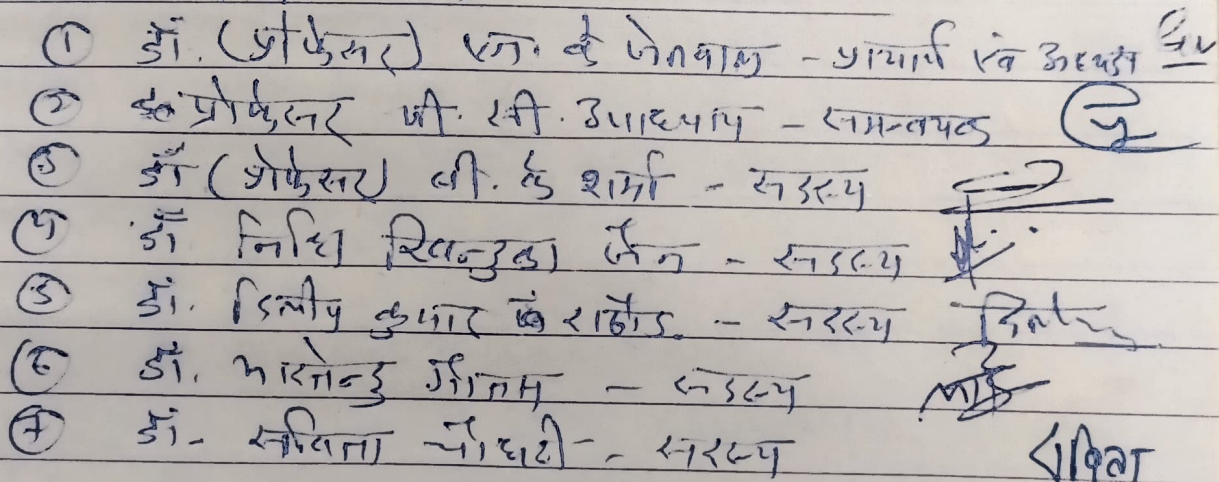 ① डॉ. (प्रोफेसर) एन. के जेतवाल - प्राचार्य एंव अध्यक्ष
② प्रोफेसर जी. सी. उपाध्याय - समन्वयक
③ डॉ (प्रोफेसर) बी. के शर्मा - सदस्य
④ डॉ निधि खिन्दुका जैन - सदस्य
⑤ डॉ. दिलीप कुमार राठौड. - सदस्य
⑥ डॉ. भारतेन्दु गौतम - सदस्य
⑦ डॉ- सविता चौधरी - सदस्य सविता